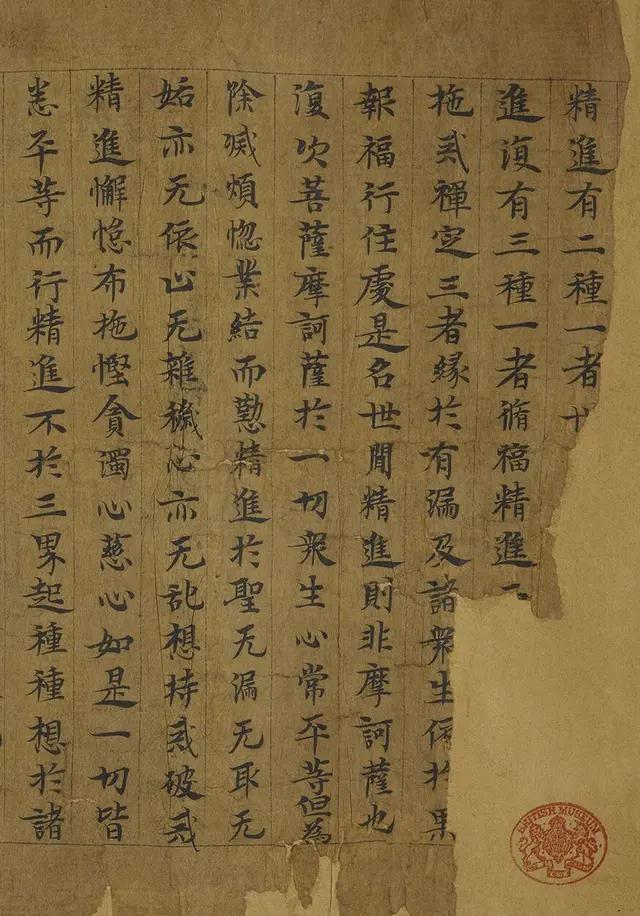 精進有二種一者
進復有三種一者脩福精進二
施戒禪定三者緣於有漏及諸衆生依於果
報福行住處是名世間精進則非摩訶薩也
復次菩薩摩訶薩於一切衆生心常平等但為
除滅煩惚業結而懃精進於聖无漏无取无
姤亦无依心无雜穢心亦无乱想持戒破戒
精進懈怠布施慳貪濁心慈心如是一切皆
悉平等而行精進不於三界起種種想於諸
BRITISH MUSEUM